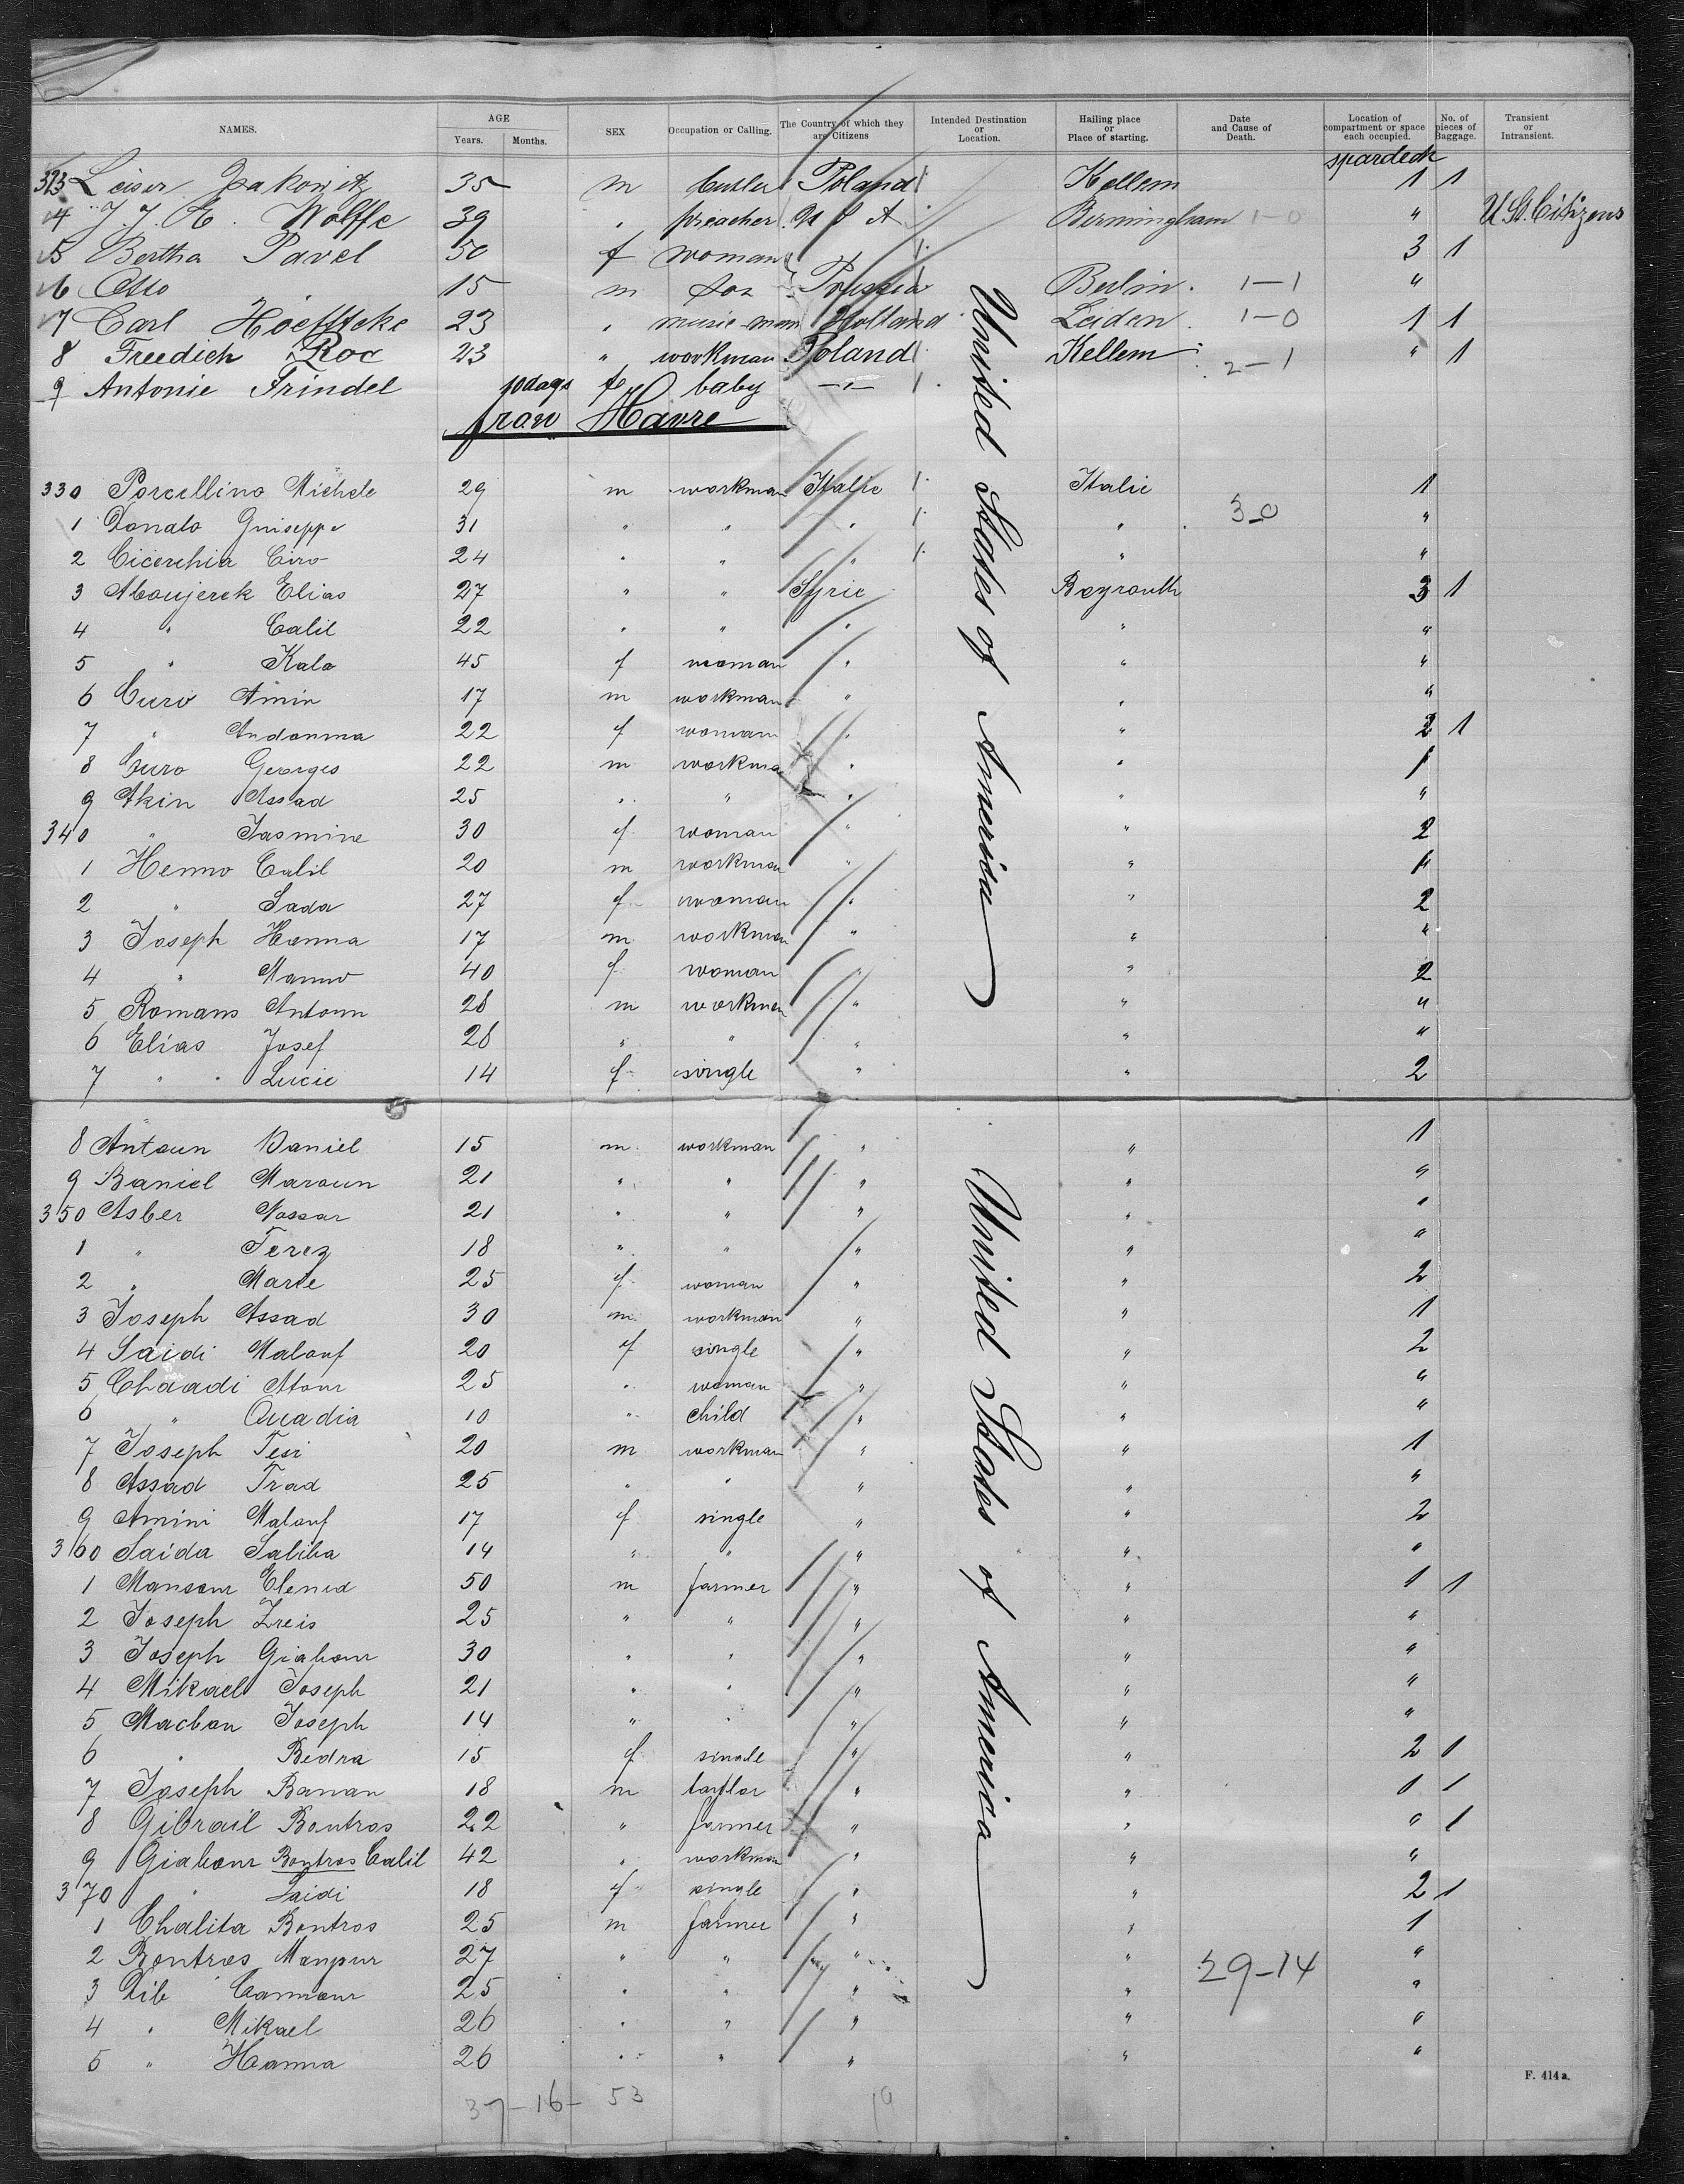 NAMES. AGE Years. Months. SEX Occupation or Calling. The Country of which they are Citizens Intended Destination or Location. Hailing place or Place of starting. Date and Cause of Death. Location of compartment or space each occupied. No. of pieces of Baggage. Transient or Intransient.
spardeck
323 Leiser 35 m butler Poland Kellem 1 1
4 J. J. E. Wolffe 39 " preacher U S A Birmingham 1-0 " U. St. Citizens
5 Bertha Pavel 50 f woman 3 1
6 Otto 15 m son Prussia Berlin. 1-1 "
7 Carl 23 " music-man Holland Leiden. 1-0 1 1
8 Freedich Roc 23 " workman Poland Kellem 2-1 " 1
9 Antonie Frindel 10 days f baby -"-
from Havre
330 Porcellino Michele 29 m workman Italie Italie 1
1 Donato Guiseppe 31 " " " " 3-0 "
2 Cicerchia Ciro 24 " " " " "
3 Aboujerek Elias 27 " " Syrie Beyrouth 3 1
4 " Calil 22 " " " " "
5 " Kala 45 f woman " " "
6 Curo Amin 17 m workman " " "
7 " Andonma 22 f woman " " 2 1
8 Curo Georges 22 m workman " " 1
9 Akin Assad 25 " " " " "
340 " Jasmine 30 f woman " " 2
1 Henno Calil 20 m workman " " 1
2 " Sada 27 f woman " " 2
3 Joseph Hanna 17 m workman " " "
4 " Manno 40 f woman " " 2
5 Romans Antoun 28 m workmen " " "
6 Elias Josef 28 " " " " "
7 " Lucie 14 f single " " 2
United States of America
8 Antoun Daniel 15 m workman " " 1
9 Daniel Maroun 21 " " " " "
350 Asber Nassar 21 " " " " "
1 " Terez 18 " " " " "
2 " Marie 25 f woman " " 2
3 Joseph Assad 30 m workman " " 1
4 Saidi Malouf 20 f single " " 2
5 Chaadi Atour 25 " woman " " "
6 " Quadia 10 " child " " "
7 Joseph Tesi 20 m workman " " 1
8 Assad Trad 25 " " " " "
9 Amini Malouf 17 f single " " 2
360 Saida Saliba 14 " " " " "
1 Mansour 50 m farmer " " 1 1
2 Joseph Zreis 25 " " " " "
3 Joseph Giabour 30 " " " " "
4 Mikael Joseph 21 " " " " "
5 Macbon Joseph 14 " " " " "
6 " Bedra 15 f single " " 2 1
7 Joseph Banan 18 m taylor " " 1 1
8 Gibrail Bontros 22 " farmer " " " 1
9 Giabour Bontros Calil 42 " workman " " "
370 " Saidi 18 f single " " 2 1
1 Chalita Bontros 25 m farmer " " 1
2 Bontros Manpur 27 " " " " 29-14 "
3 Dib Cammour 25 " " " " "
4 " Mikael 26 " " " " "
5 " Hanna 26 " " " " "
United States of America
F. 414a.
37-16-53 19